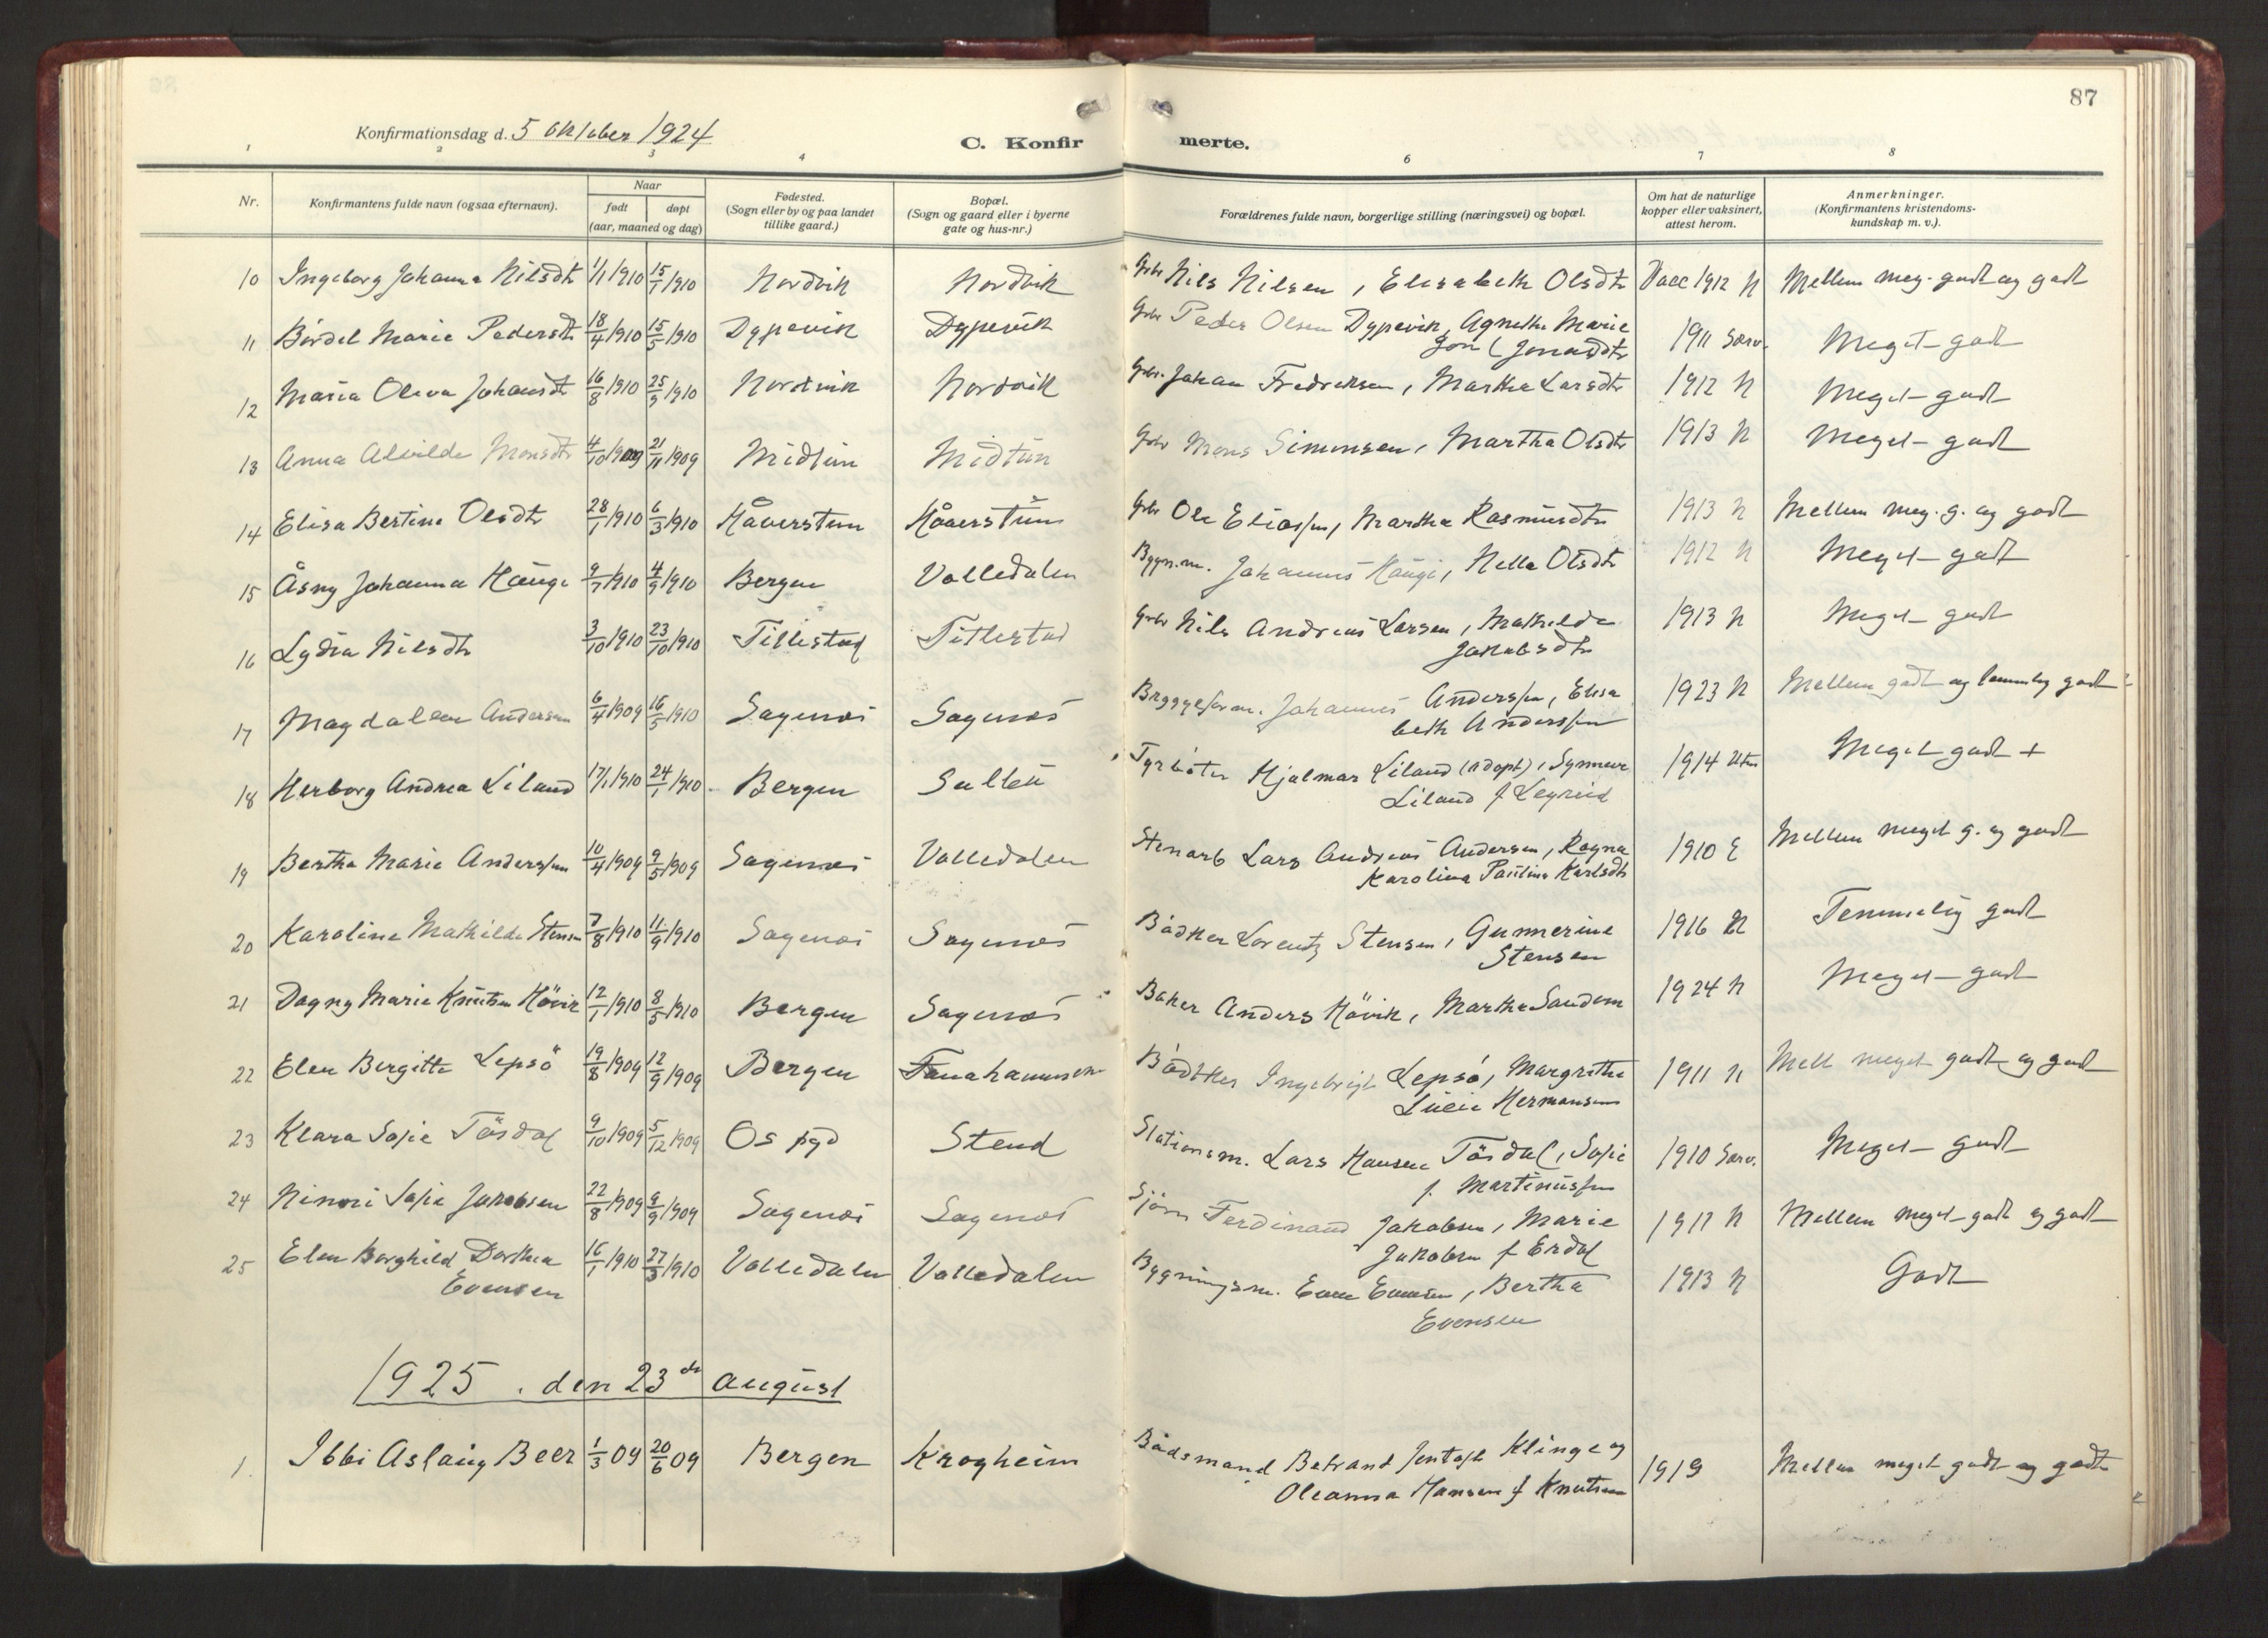 87
Konfirmationsdag d. 5 oktober 1924
C. Konfir merte.
1 2 3 4 6 7 8
Nr.
Konfirmantens fulde navn (ogsaa efternavn).
Naar
født døpt
(aar, maaned og dag)
Fødested.
(Sogn eller by og paa landet
tillike gaard.)
Bopæl.
(Sogn og gaard eller i byerne
gate og hus-nr.)
Forældrenes fulde navn, borgerlige stilling (næringsvei) og bopæl.
Om hat de naturlige
kopper eller vaksinert,
attest herom.
Anmerkninger.
(Konfirmantens kristendoms-
kundskap m. v.).
10 Ingeborg Johanna Nilsdtr 1/1 1910 15/1 1910 Nordvik Nordvik Gbr Nils Nilsen, Elisabeth Olsdtr Vacc 1912 N Mellem meg. godt og godt
11 Bordel Marie Pedersdtr 18/4 1910 15/5 1910 Dypevik Dypevik Gbr Peder Olsen Dypevik, Agnethe Marie 1911 Sørv. Meget godt
Jonasdtr
12 Maria Oliva Johansdtr 16/8 1910 25/9 1910 Nordvik Nordvik Gbr. Johan Fredriksen, Martha Larsdtr 1912 N Meget godt
13 Anna Alvilde Monsdtr 4/10 1909 21/11 1909 Midtun Midtun Gbr Mons Simonsen, Martha Olsdtr 1913 N Meget godt
14 Elisa Bertine Olsdtr 28/1 1910 6/3 1910 Håverstun Håverstun Gbr Ole Eliassen, Martha Rasmusdtr 1913 N Mellem meg. g. og godt
15 Åsny Johanna Hauge 9/7 1910 4/9 1910 Bergen Valledalen Bygn.m. Johannes Haugi, Nella Olsdtr 1912 N Meget godt
16 Lydia Nilsdtr 3/10 1910 23/10 1910 Titlestad Titlestad Gbr Nils Andreas Larsen, Mathilde 1913 N Meget godt
Jakobsdtr
17 Magdalene Andersen 6/4 1909 16/5 1910 Sagenøs Sagenøs Bryggeform. Johannes Anderssen, Elisa 1923 N Mellem godt og temmelig godt
beth Anderssen
18 Herborg Andrea Liland 17/1 1910 24/1 1910 Bergen Hjalmar Liland (adopt), Synneve 1914 Meget godt +
Liland f
19 Bertha Marie Anderssen 10/4 1909 9/5 1909 Sagenøs Valledalen Stenarb Lars Andreas Andersen, Ragna 1910 E Mellem meget g. og godt
Karolina Paulina Karlsdtr
20 Karoline Mathilde Stensen 7/8 1910 11/9 1910 Sagenøs Sagenøs Bødker Lorentz Stensen, Gunnerine 1916 N Temmelig godt
Stensen
21 Dagny Marie Knutsen Hövik 12/1 1910 8/5 1910 Bergen Sagenøs Baker Anders Hövik, Martha Sandem 1924 N Meget godt
22 Elen Bergitte Lepsö 19/8 1909 12/9 1909 Bergen Fanahammeren Bödtker Ingebrigt Lepsö, Margrethe 1911 N Mell meget godt og godt
Lucie Hermansen
23 Klara Sofie Tösdal 9/10 1909 5/12 1909 Os pgd Stend Stationsm. Lars Hansen Tösdal, Sofie 1910 Sørv. Meget godt
f. Martinussen
24 Ninni Sofie Jakobsen 22/8 1909 9/9 1909 Sagenøs Sagenøs Sjöm Ferdinand Jakobsen, Marie 1917 N Mellem meget godt og godt
Jakobsen f Erdal
25 Elen Borghild Dorthea 16/1 1910 27/3 1910 Valledalen Valledalen Bygningsm. Even Evensen, Bertha 1913 N Godt
Evensen Evensen
1925. den 23de august
1. Ibbi Aslaug Beer 1/3 09 20/6 09 Bergen Krogheim Bådsmand Betrand Jentoft Klinge og 1919 Mellem meget godt og godt
Oleanna Hansen f Knutsen